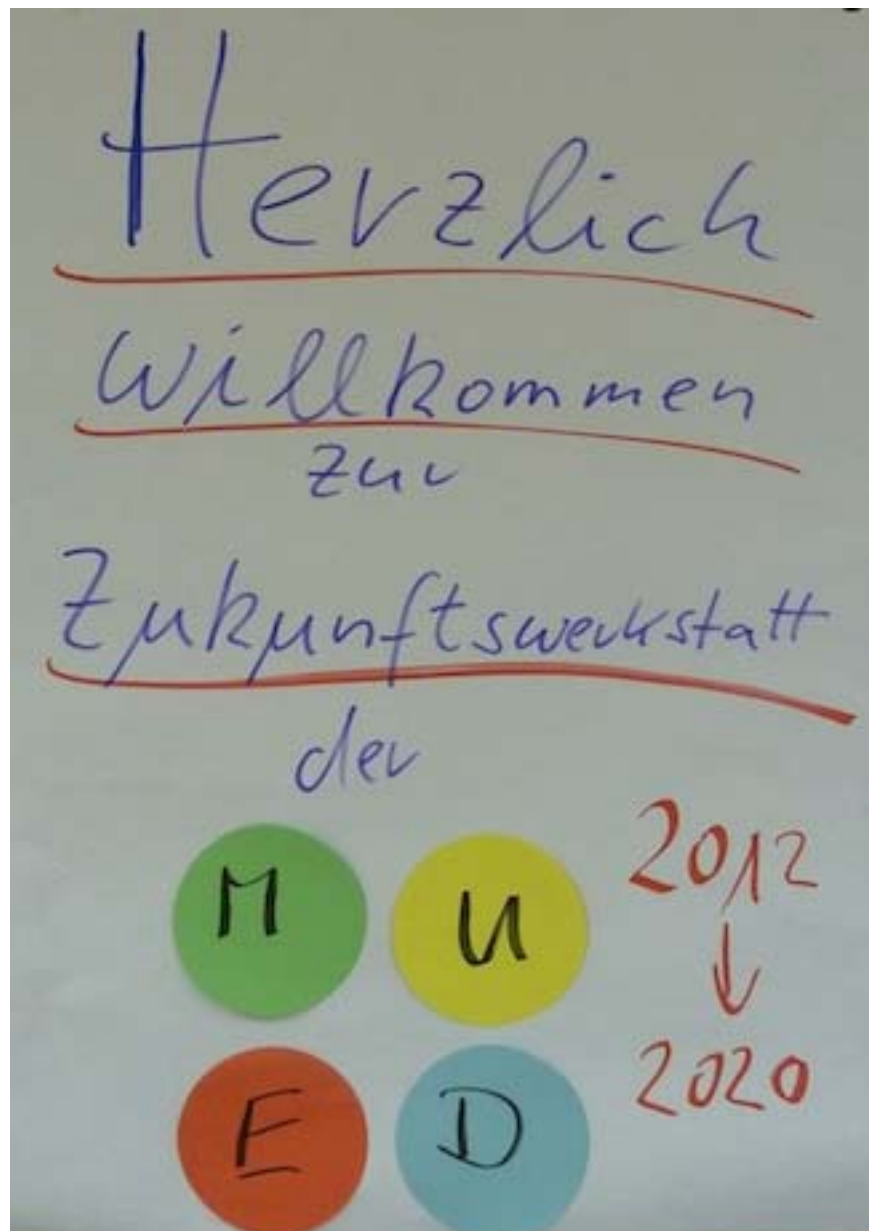 Herzlich
Willkommen
zur
Zukunftswerkstatt
der
M U
2012
↓
E D
2020